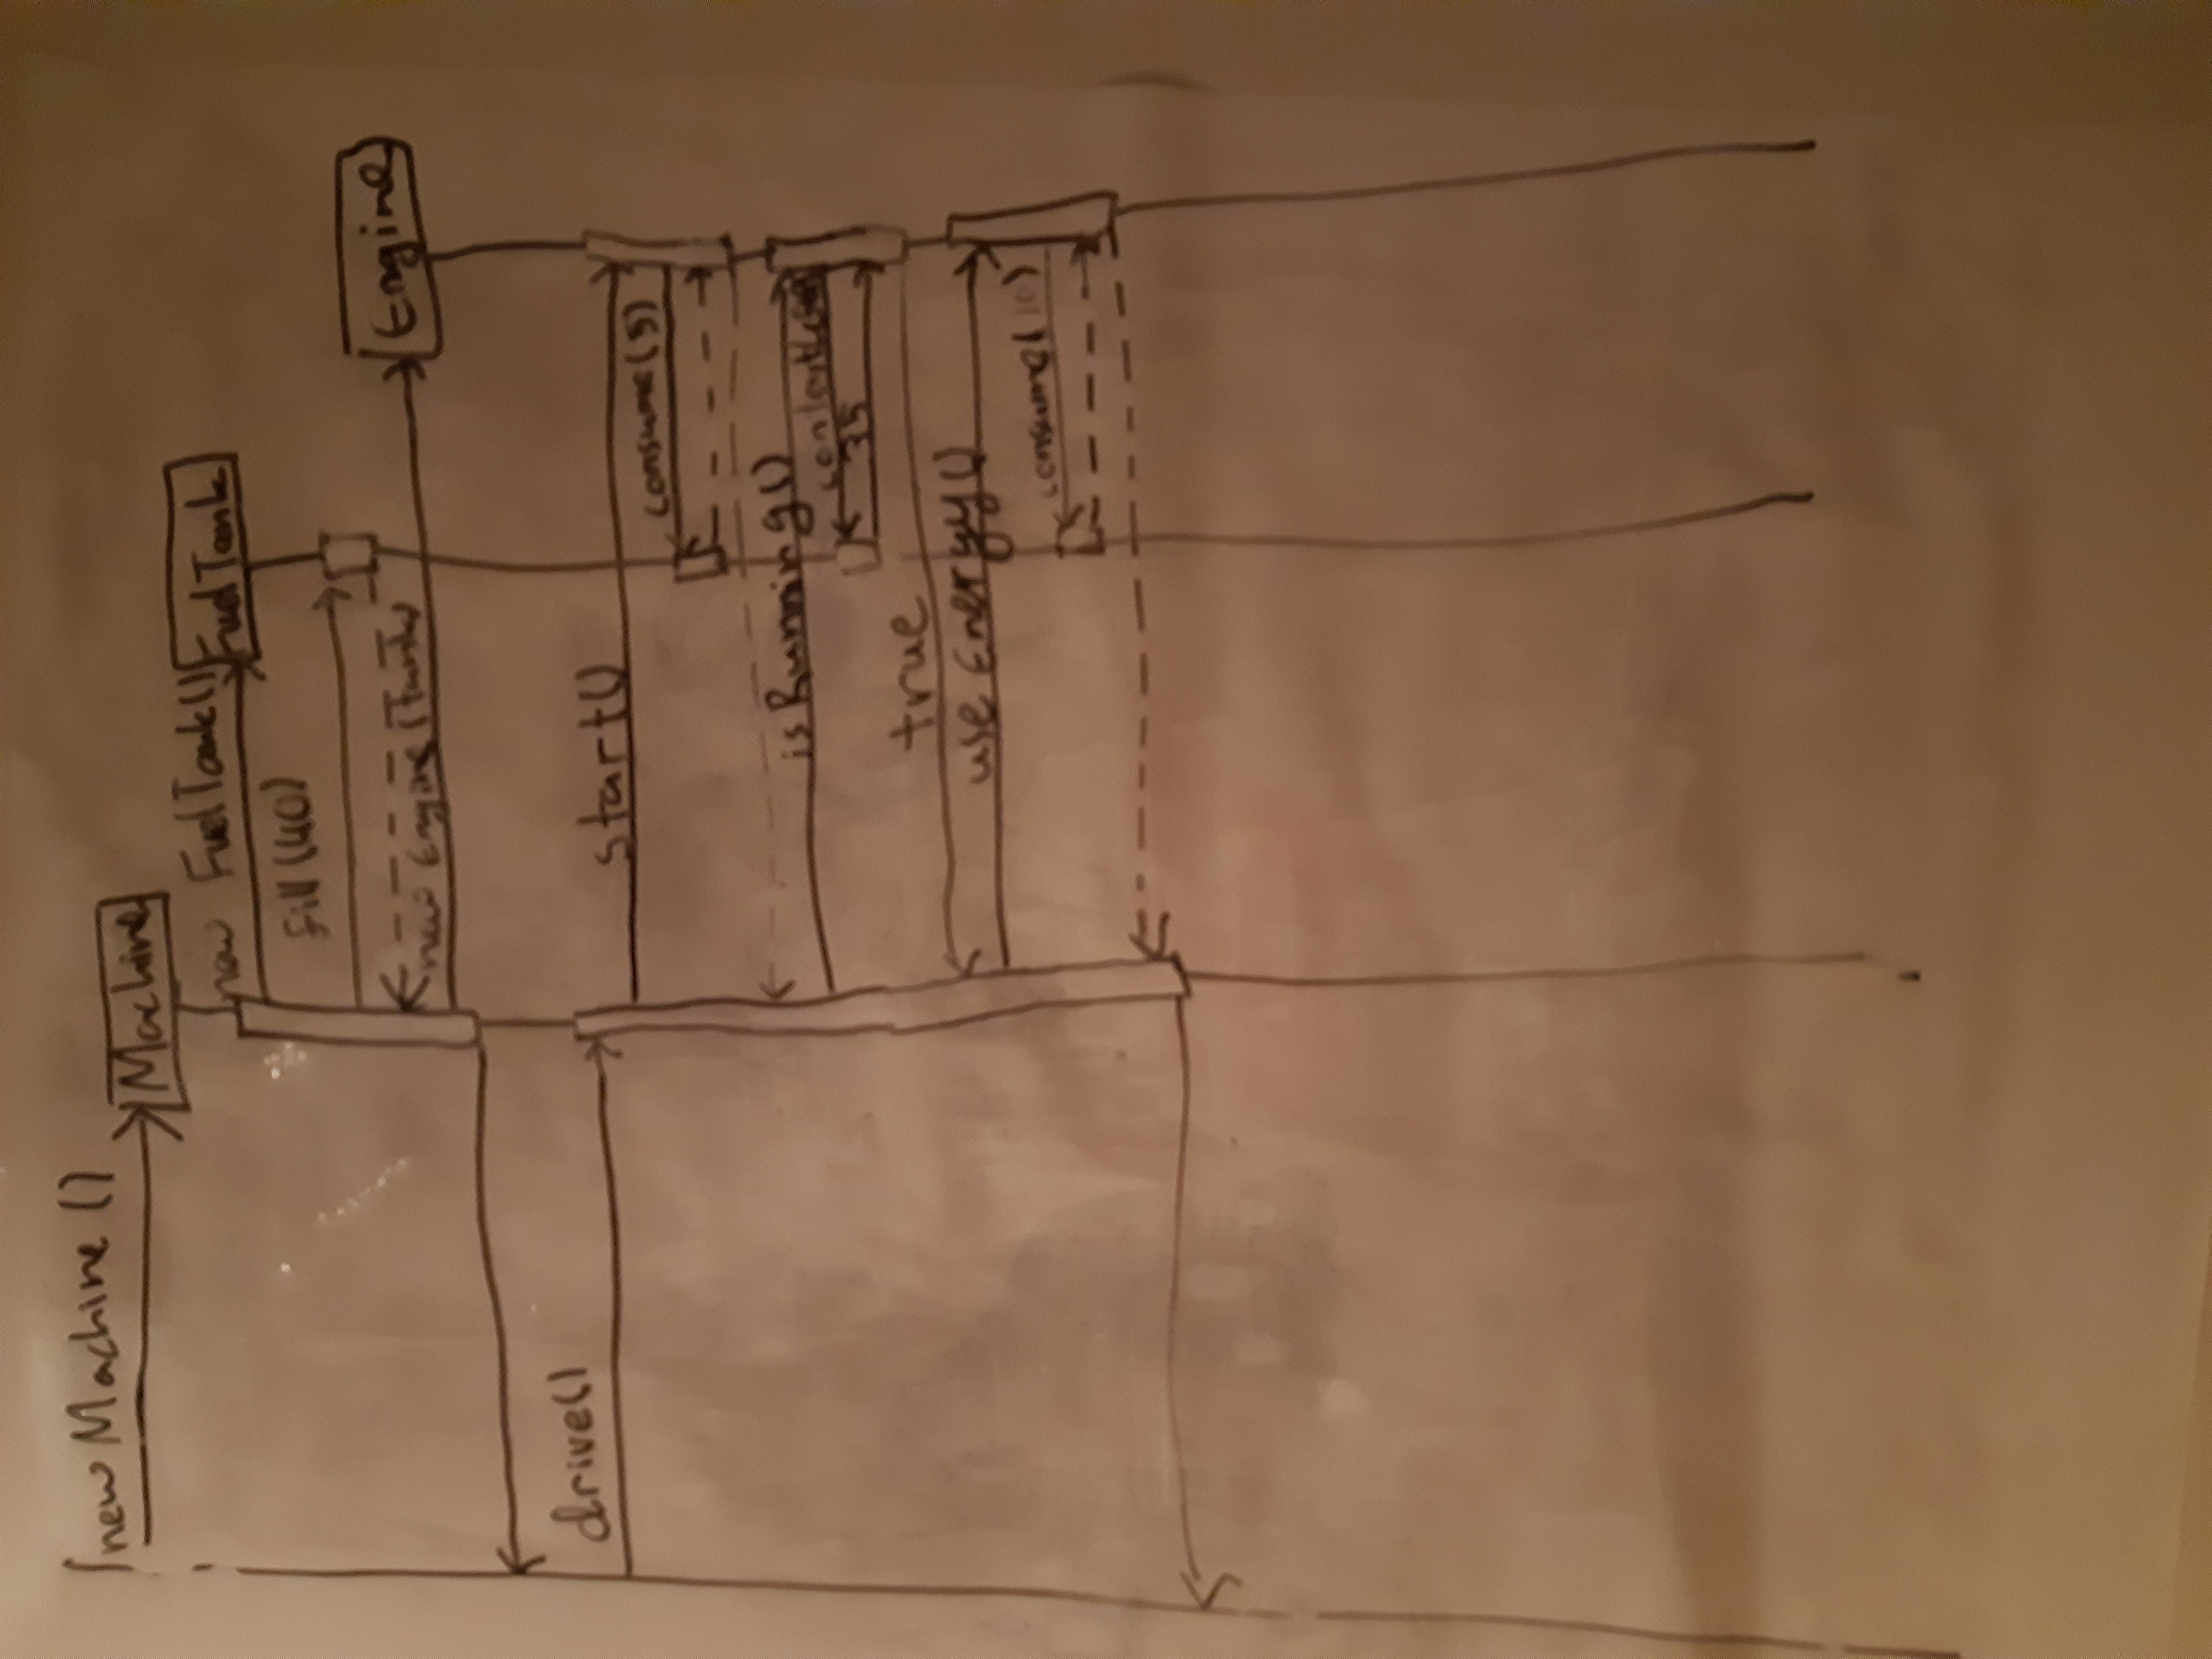 new Machine ()
Machine
new FuelTank()
FuelTank
fill (40)
Engine
new Engine (Tank)
drive()
start()
consume (5)
isRunning()
35
true
use Energy ()
consume( 10 )